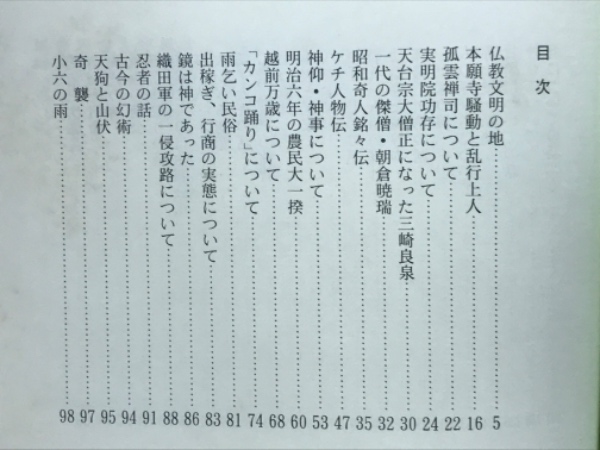 目次
仏教文明の地 5
本願寺騒動と乱行上人 16
孤雲禅司について 22
実明院功存について 24
天台宗大僧正になった三崎良泉 30
一代の傑僧・朝倉暁瑞 32
昭和奇人銘々伝 35
ケチ人物伝 47
神仰・神事について 53
明治六年の農民大一揆 60
越前万歳について 68
「カンコ踊り」について 74
雨乞い民俗 81
出稼ぎ、行商の実態について 83
鏡は神であった 86
織田軍の一侵攻路について 88
忍者の話 91
古今の幻術 94
天狗と山伏 95
奇襲 97
小六の雨 98